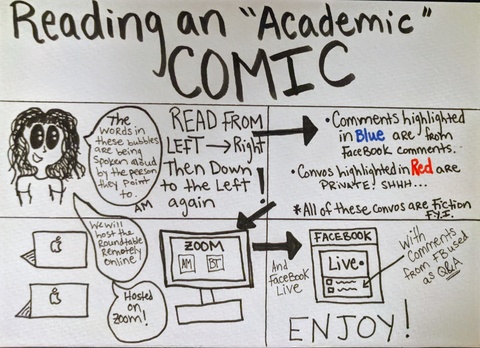 Reading an "Academic"
COMIC
The
WORDS in
these bubbles
are being
spoken aloud
by the person
they point
to.
AM
READ FROM
LEFT → Right
Then Down
to the Left
again !
• Comments highlighted
in Blue are from
FaceBook comments.
• Convos highlighted in Red are
PRIVATE! SHHH...
* All of these Convos are Fiction
F.Y.I.
We will
host the
Roundtable
Remotely
Online!
Hosted
on
Zoom!
ZOOM
AM
BT
And
FaceBook
Live
FACEBOOK
Live •
With
Comments
from FB used
as Q&A
ENJOY!